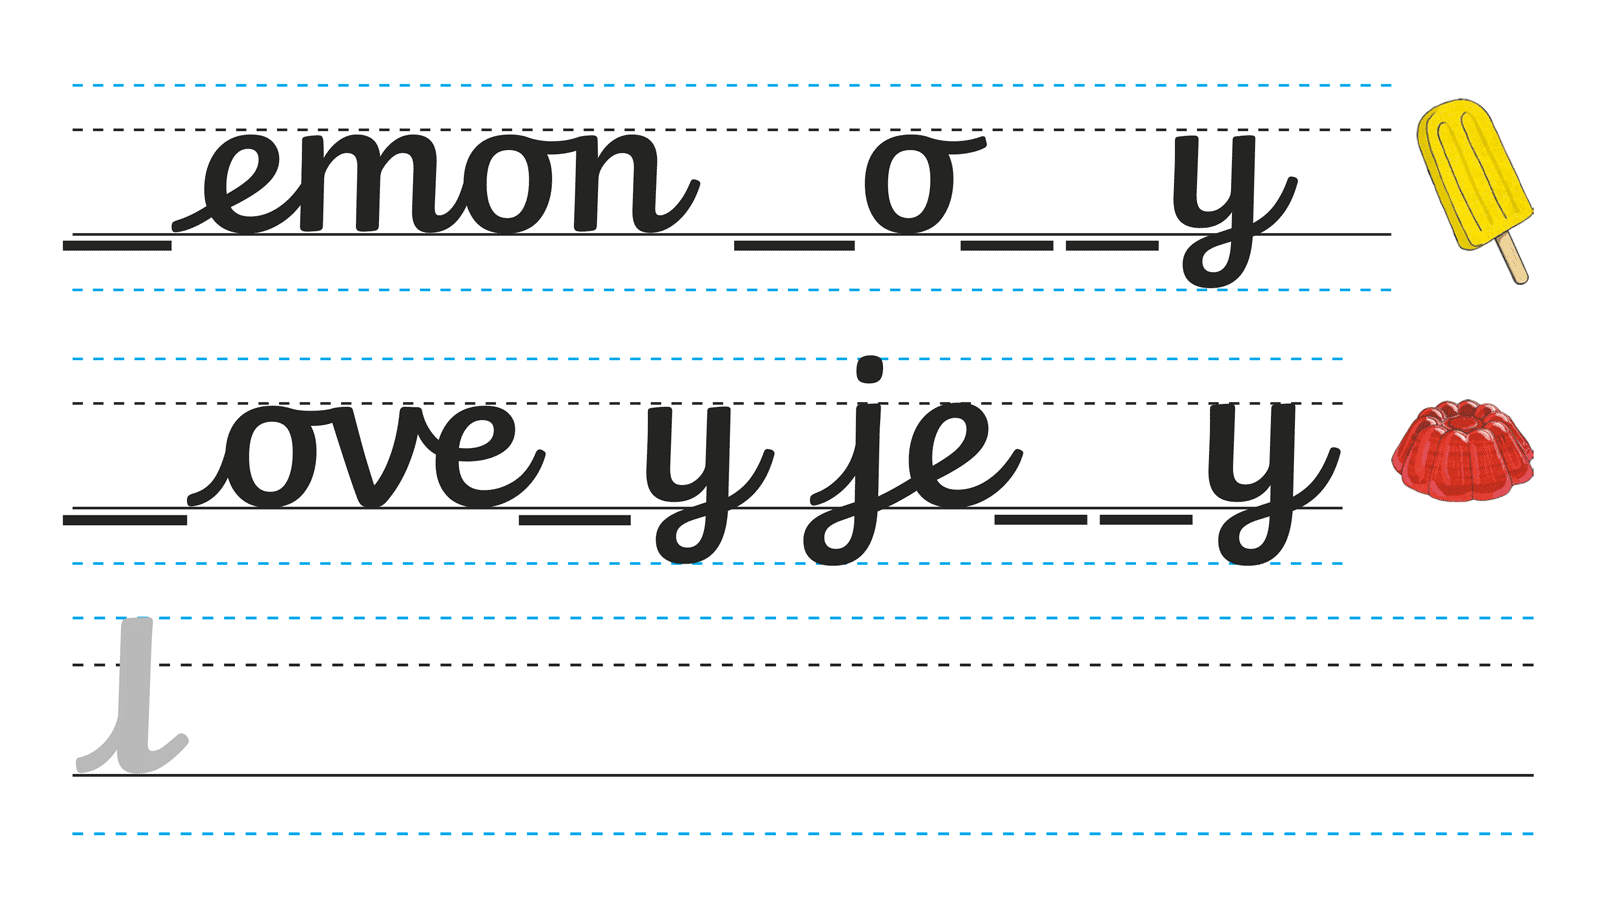 _emon _o__y
_ove_y je__y
l